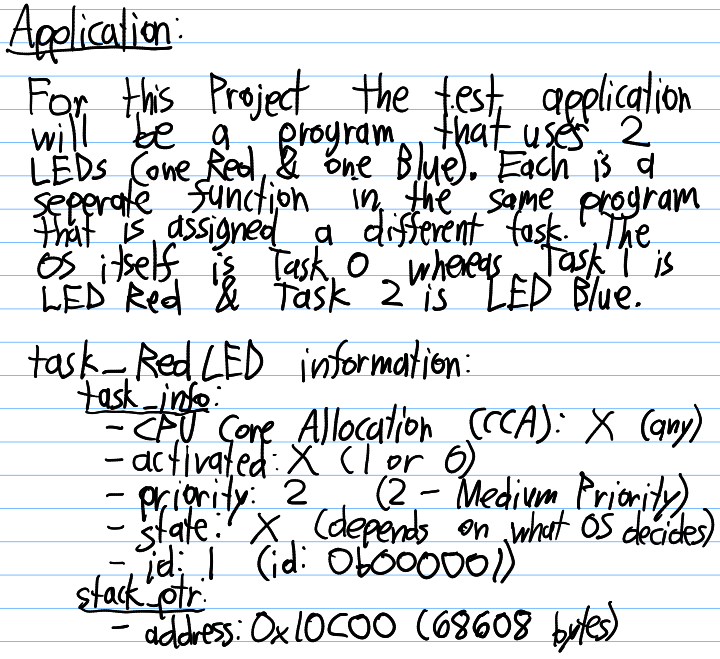 Application:
For this Project the test application
will be a program that uses 2
LEDs (one Red & one Blue). Each is a
seperate function in the same program
that is assigned a different task. The
OS itself is Task 0 whereas Task 1 is
LED Red & Task 2 is LED Blue.
task_RedLED information:
task_info:
- CPU Core Allocation (CCA): X (any)
- activated: X (1 or 0)
- priority: 2 (2 - Medium Priority)
- state: X (depends on what OS decides)
- id: 1 (id: 0b000001)
stack_ptr:
- address: 0x10C00 (68608 bytes)